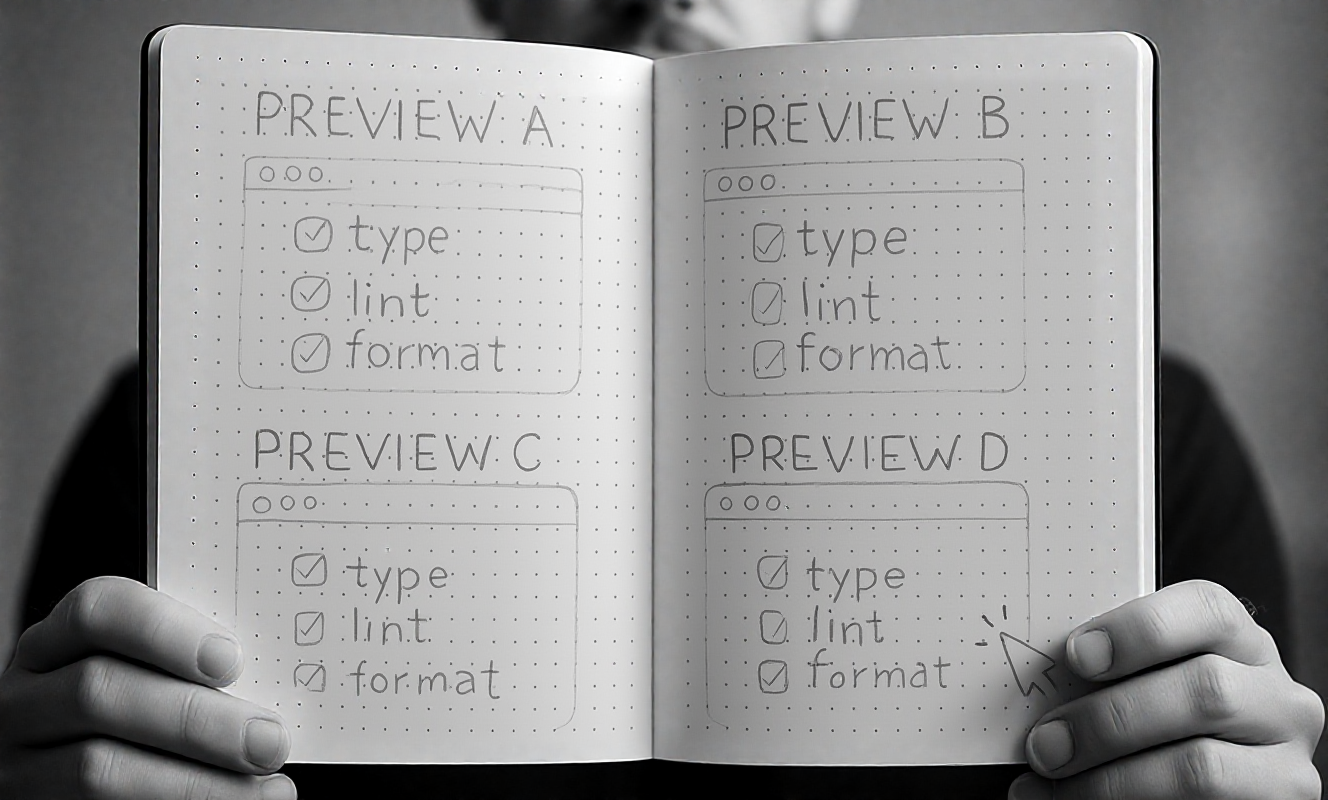 PREVIEW A
type
lint
format
PREVIEW B
type
lint
format
PREVIEW C
type
lint
format
PREVIEW D
type
lint
format